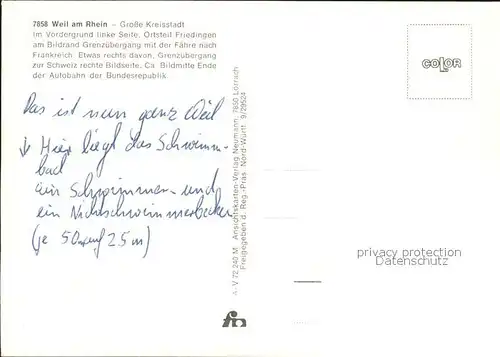 7858 Weil am Rhein – Große Kreisstadt
Im Vordergrund linke Seite, Ortsteil Friedingen
am Bildrand Grenzübergang mit der Fähre nach
Frankreich. Etwas rechts davon, Grenzübergang
zur Schweiz rechte Bildseite. Ca. Bildmitte Ende
der Autobahn der Bundesrepublik.
Das ist nun ganz Weil
↓ Hier liegt das Schwimm-
bad
ein Schwimmer- und
ein Nichtschwimmerbecken
(je 50 auf 25 m)
A.-V 72 240 M Ansichtskarten-Verlag Neumann, 7850 Lörrach
Freigegeben d. Reg.-Präs. Nord-Württ. 9/29524
COLOR
privacy protection
Datenschutz